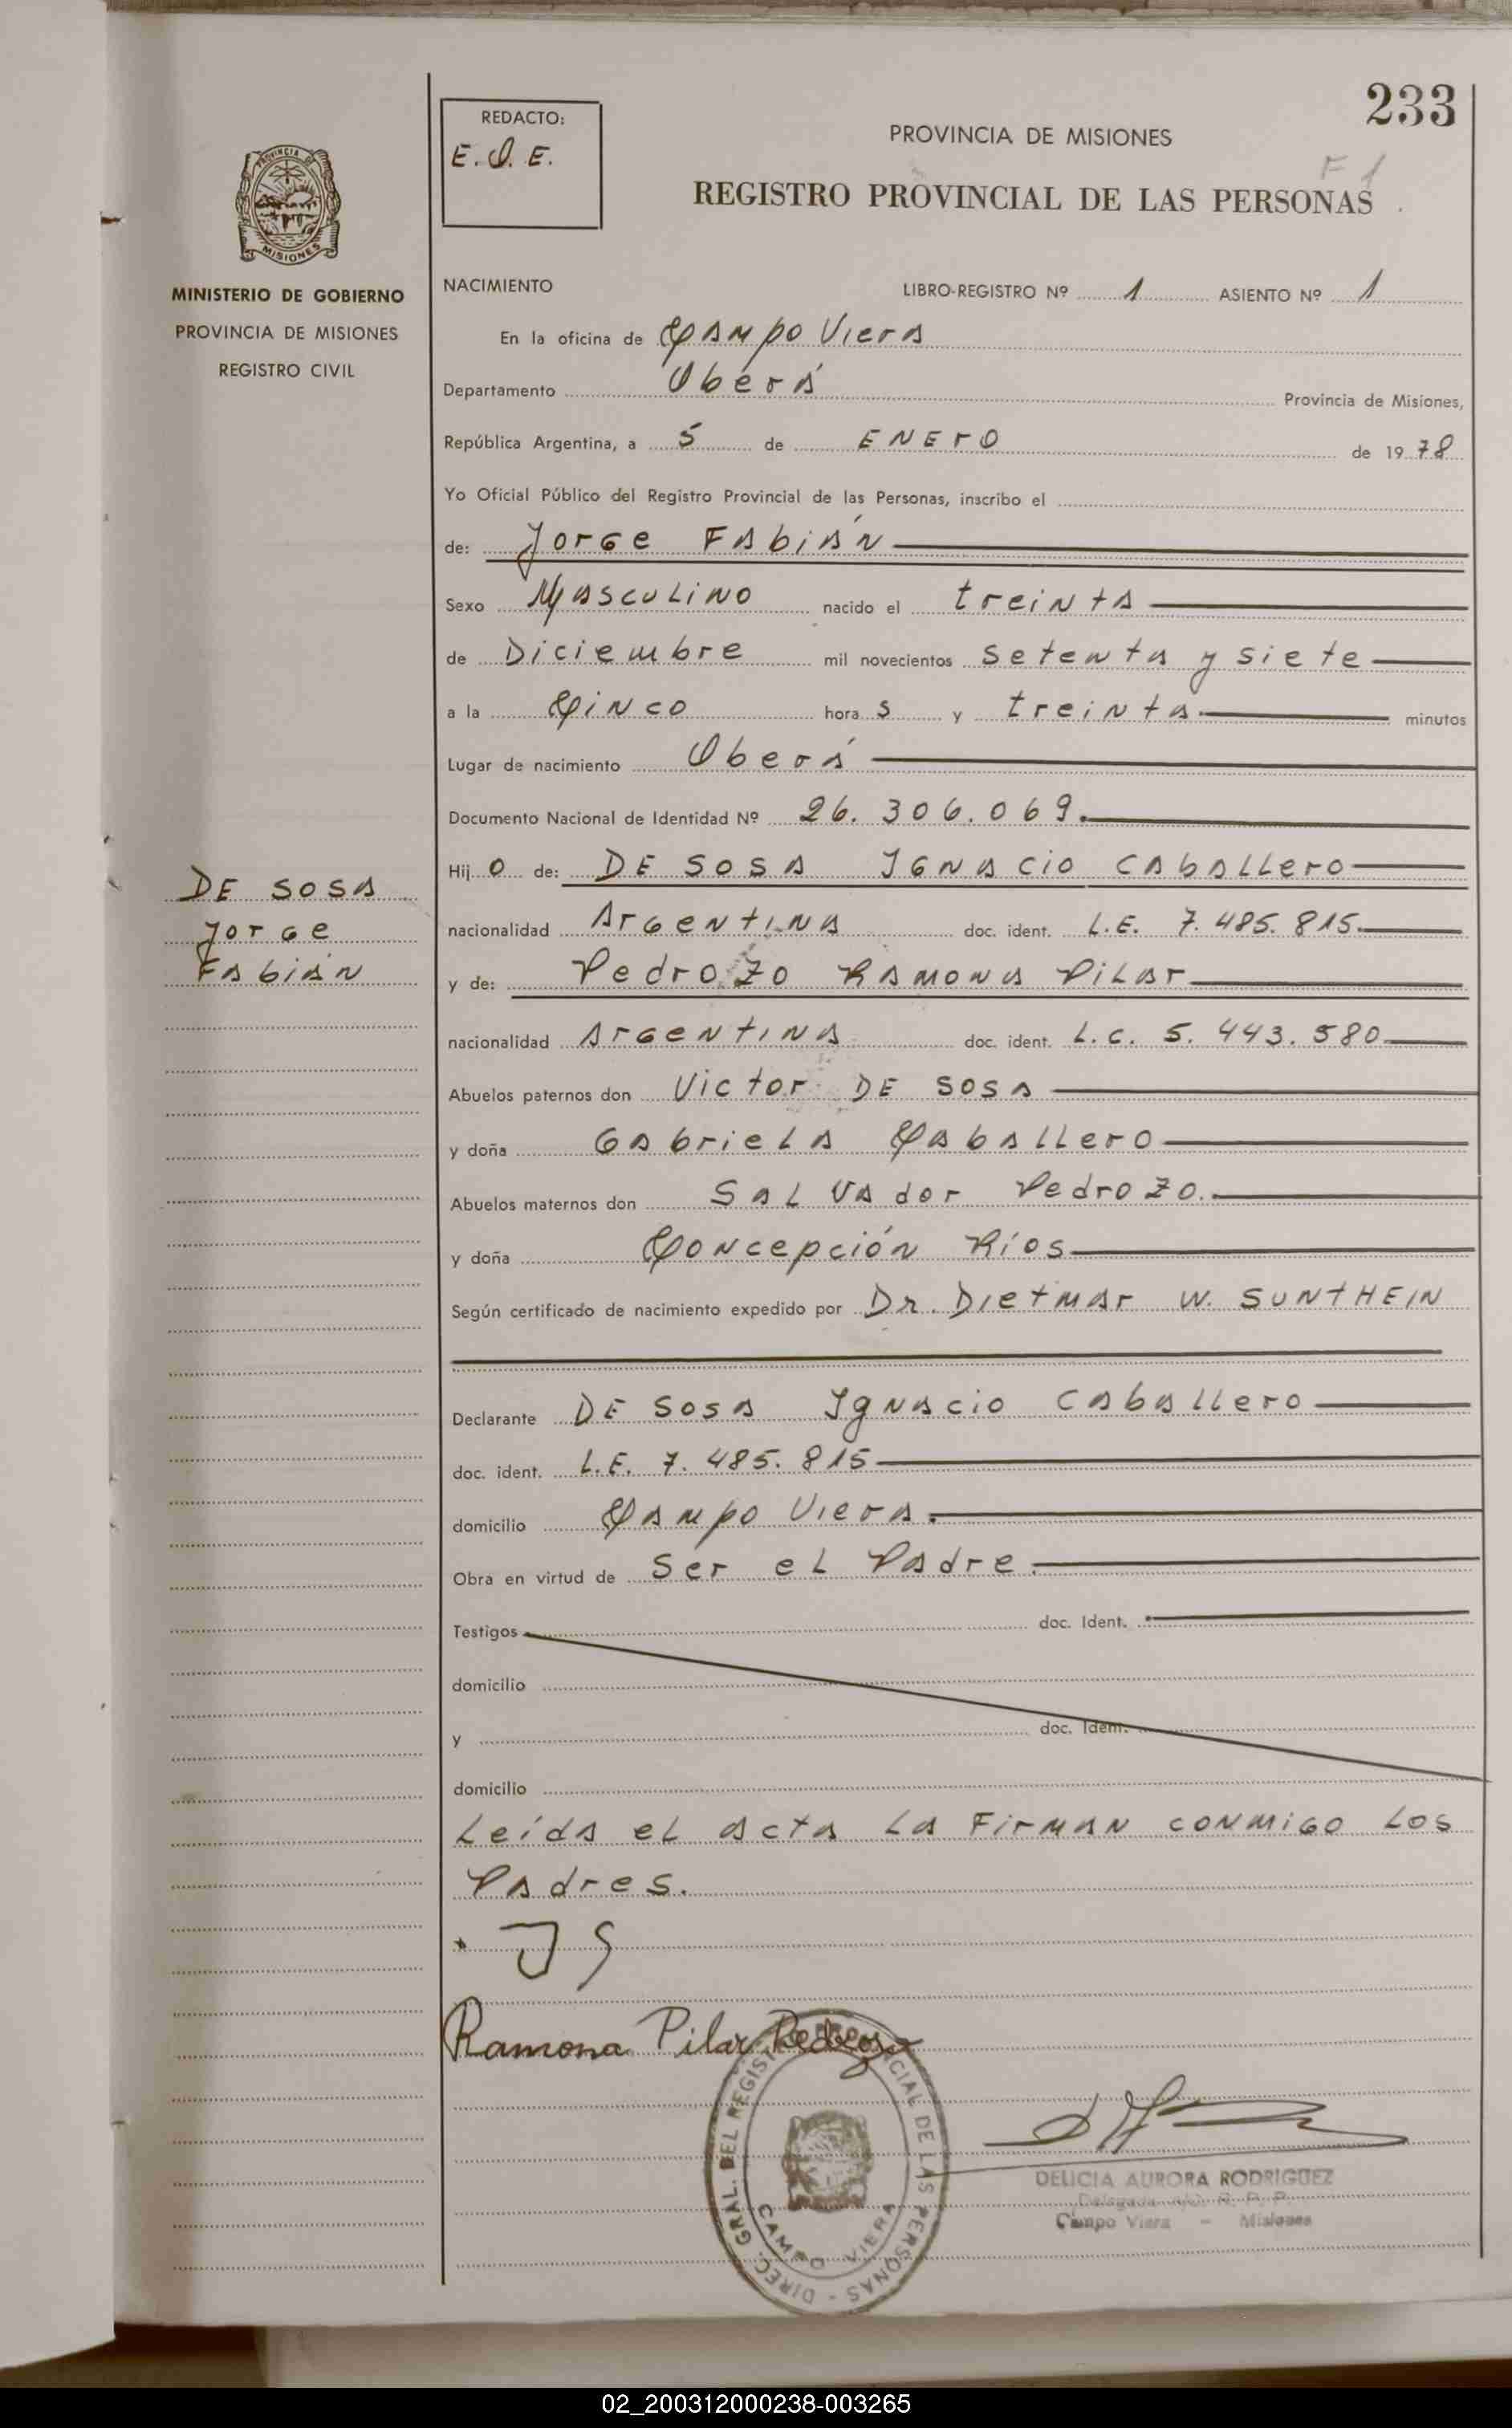 233
REDACTO:
E. O. E.
PROVINCIA DE MISIONES
F 1
REGISTRO PROVINCIAL DE LAS PERSONAS
PROVINCIA DE
MISIONES
MINISTERIO DE GOBIERNO
PROVINCIA DE MISIONES
REGISTRO CIVIL
NACIMIENTO LIBRO-REGISTRO Nº 1 ASIENTO Nº 1
En la oficina de Campo Viera
Departamento Oberá Provincia de Misiones,
República Argentina, a 5 de ENERO de 1978
Yo Oficial Público del Registro Provincial de las Personas, inscribo el
de: Jorge Fabián
Sexo Masculino nacido el treinta
de Diciembre mil novecientos setenta y siete
a la Cinco hora s y treinta minutos
Lugar de nacimiento Oberá
Documento Nacional de Identidad Nº 26.306.069.
Hij o de: DE SOSA IGNACIO CABALLERO
DE SOSA
Jorge
Fabián
nacionalidad Argentina doc. ident. L.E. 7.485.815.
y de: Pedrozo Ramona Pilar
nacionalidad Argentina doc. ident. L.C. 5.443.580
Abuelos paternos don Victor DE SOSA
y doña Gabriela Caballero
Abuelos maternos don Salvador Pedrozo.
y doña Concepción Ríos
Según certificado de nacimiento expedido por Dr. Dietmar W. SUNTHEIN
Declarante DE SOSA Ignacio Caballero
doc. ident. L.E. 7.485.815
domicilio Campo Viera.
Obra en virtud de Ser el Padre.
Testigos doc. Ident.
domicilio
y doc. Ident.
domicilio
Leída el acta la firman conmigo los
Padres.
J S
Ramona Pilar Pedrozo
DIREC. GRAL. DEL REGISTRO PROVINCIAL DE LAS PERSONAS
CAMPO VIERA
DELICIA AURORA RODRIGUEZ
Delegada
Campo Viera - Misiones
02_200312000238-003265